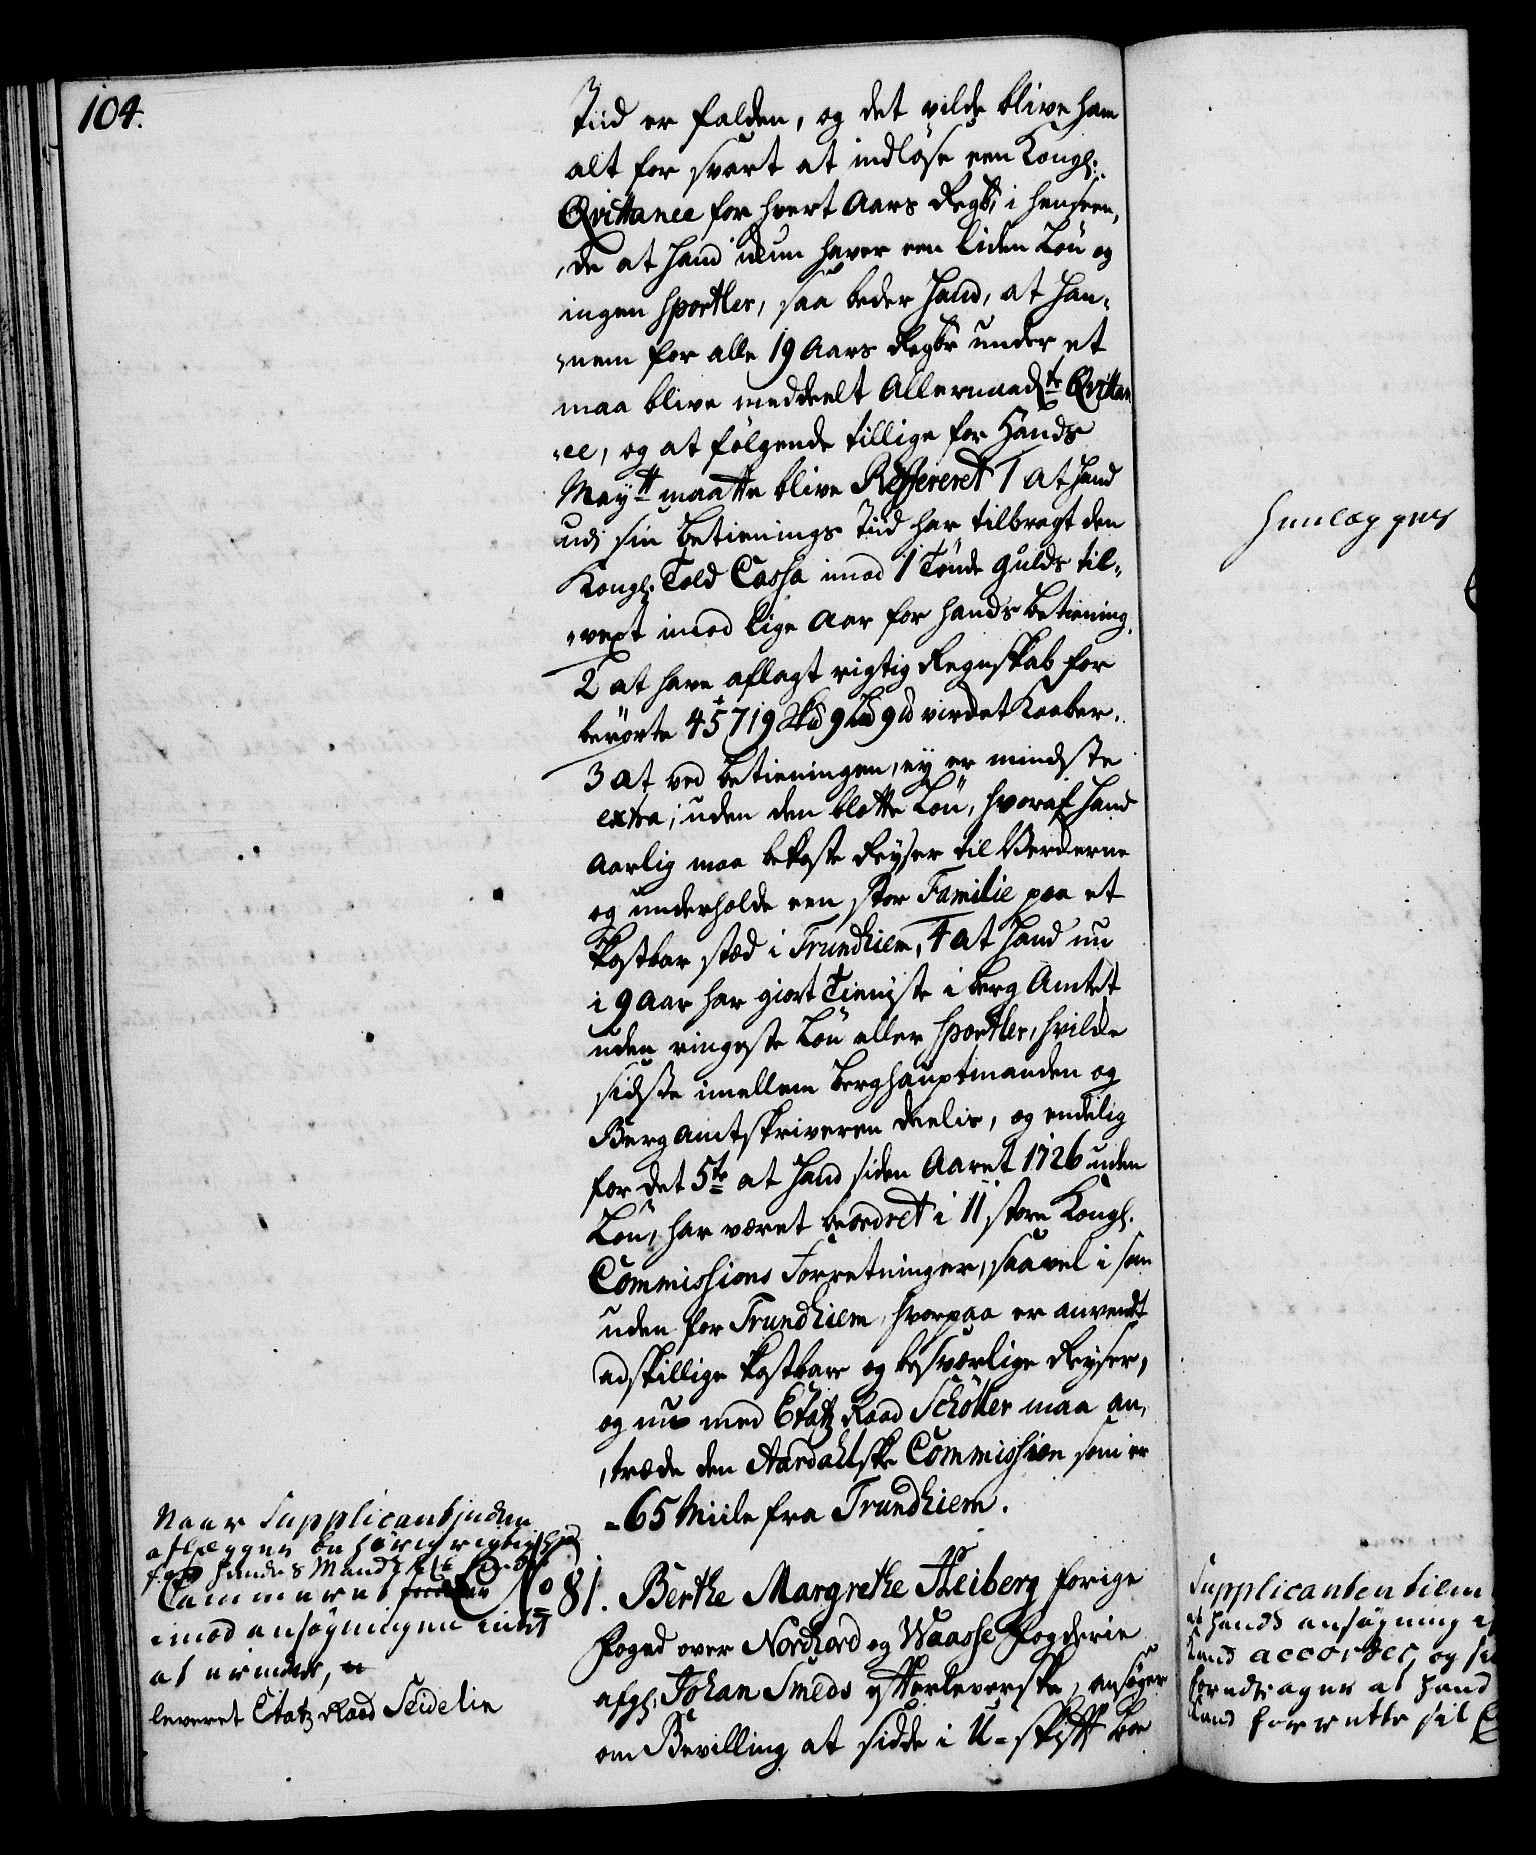 104.
Tiid er falden, og det vilde blive ham
alt for svart at indløse een Kongl:
Qvittance for hvert Aars Regsk: i henseen,
,de at hand kun haver een liden Løn og
ingen Sportler, saa beder hand, at han,
,nem for alle 19 Aars Regsk: under et
maa blive meddeelt Allernaadste Qvittan
,ce, og at følgende tillige for Hands
Mayst: maatte blive Reffereret 1 at hand
udj sin Betienings Tiid har tilbragt den
Kongl: Told Cassa imod 1 Tønde Gulds til,
,vext imod lige Aar for hands Betiening,
2 at have aflagt rigtig Regnskab for
berørte 45719 Skd 9 Ld 9 d virdet Kaaber.
3 at ved Betieningen, ey er mindste
extra, uden den blotte Løn, hvoraf hand
Aarlig maa bekoste Reyser til Verderne
og underholde een stor Familie paa et
kostbar stæd i Trundhiem, 4 at hand nu
i 9 Aar har giort Tieniste i Berg Amtet
uden ringeste Løn eller Sportler, hvilke
sidste imellem Berghauptmanden og
Bergamtskriveren deelis, og endelig
for det 5te at hand siden Aaret 1726 uden
Løn, har været beordret i 11 store Kongl.
Commissions Forretninger, saavel i som
uden for Trundhiem, hvorpaa er anvendt
adskillige kostbare og besværlige Reyser,
og nu med Etatz Raad Schøller maa an,
,træde den Aardahlske Commission som er
-65 Miile fra Trundhiem.
Naar Supplicantinden
aflægger behørig rigtighed
for hendes Mands
Cammeret
imod ansøgningen intet
at erindre,
leveret Etatz Raad Seidelin
No 81. Berthe Margrethe Heiberg forige
Foged over Nordhord og Waasse Fogderie
afgl: Johan Smeds efterleverske, ansøger
om Bevilling at sidde i U-skifft Boe
henlægges
Supplicanten tilm
at hands ansøgning
kand accorder, og
foredrages at hand
kand forrette sit